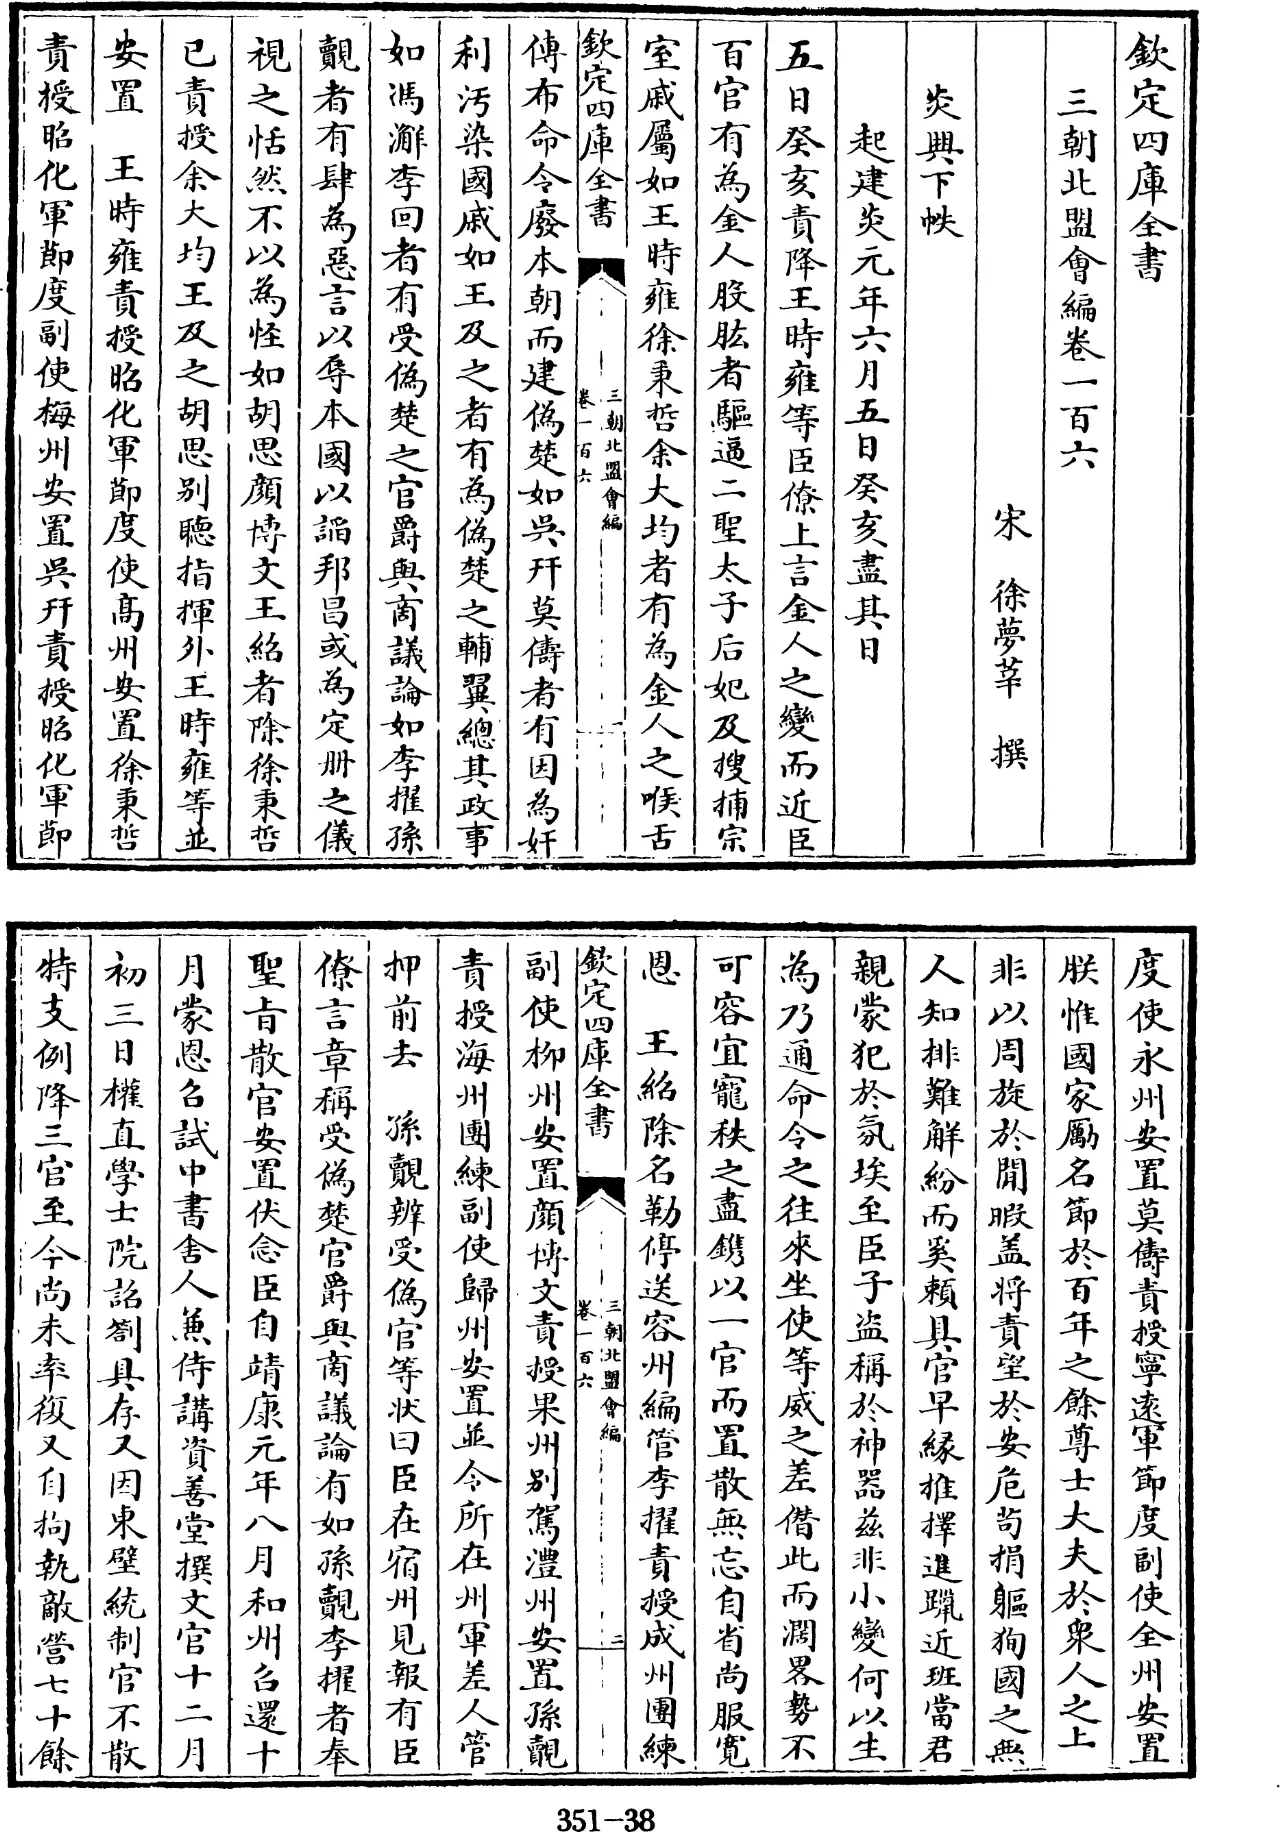 欽定四庫全書
三朝北盟會編卷一百六
宋 徐夢莘 撰
炎興下帙
起建炎元年六月五日癸亥盡其日
五日癸亥責降王時雍等臣僚上言金人之變而近臣
百官有為金人股肱者驅逼二聖太子后妃及搜捕宗
室戚屬如王時雍徐秉哲余大均者有為金人之喉舌
欽定四庫全書
三朝北盟會編
卷一百六
一
傳布命令廢本朝而建偽楚如吳幵莫儔者有因為奸
利汚染國戚如王及之者有為偽楚之輔翼總其政事
如馮澥李回者有受偽楚之官爵與商議論如李擢孫
覿者有肆為惡言以辱本國以謟邦昌或為定册之儀
視之恬然不以為怪如胡思顔博文王紹者除徐秉哲
已責授余大均王及之胡思别聽指揮外王時雍等並
安置 王時雍責授昭化軍節度使髙州安置徐秉哲
責授昭化軍節度副使梅州安置吳幵責授昭化軍節
度使永州安置莫儔責授寧遠軍節度副使全州安置
朕惟國家厲名節於百年之餘尊士大夫於衆人之上
非以周旋於閒暇盖将責望於安危茍捐軀狥國之無
人知排難解紛而奚賴具官早緣推擇進躐近班當君
親蒙犯於氛埃至臣子盜稱於神器兹非小變何以生
為乃通命令之往來坐使等威之差僣此而濶畧勢不
可容宜寵秩之盡鐫以一官而置散無忘自省尚服寛
恩 王紹除名勒停送容州編管李擢責授成州團練
欽定四庫全書
三朝北盟會編
卷一百六
二
副使柳州安置顔博文責授果州别駕澧州安置孫覿
責授海州團練副使歸州安置並令所在州軍差人管
押前去 孫覿辨受偽官等狀曰臣在宿州見報有臣
僚言章稱受偽楚官爵與商議論有如孫覿李擢者奉
聖㫖散官安置伏念臣自靖康元年八月和州召還十
月蒙恩召試中書舍人兼侍講資善堂撰文官十二月
初三日權直學士院詔劄具存又因東壁統制官不散
特支例降三官至今尚未牽復又自拘執敵營七十餘